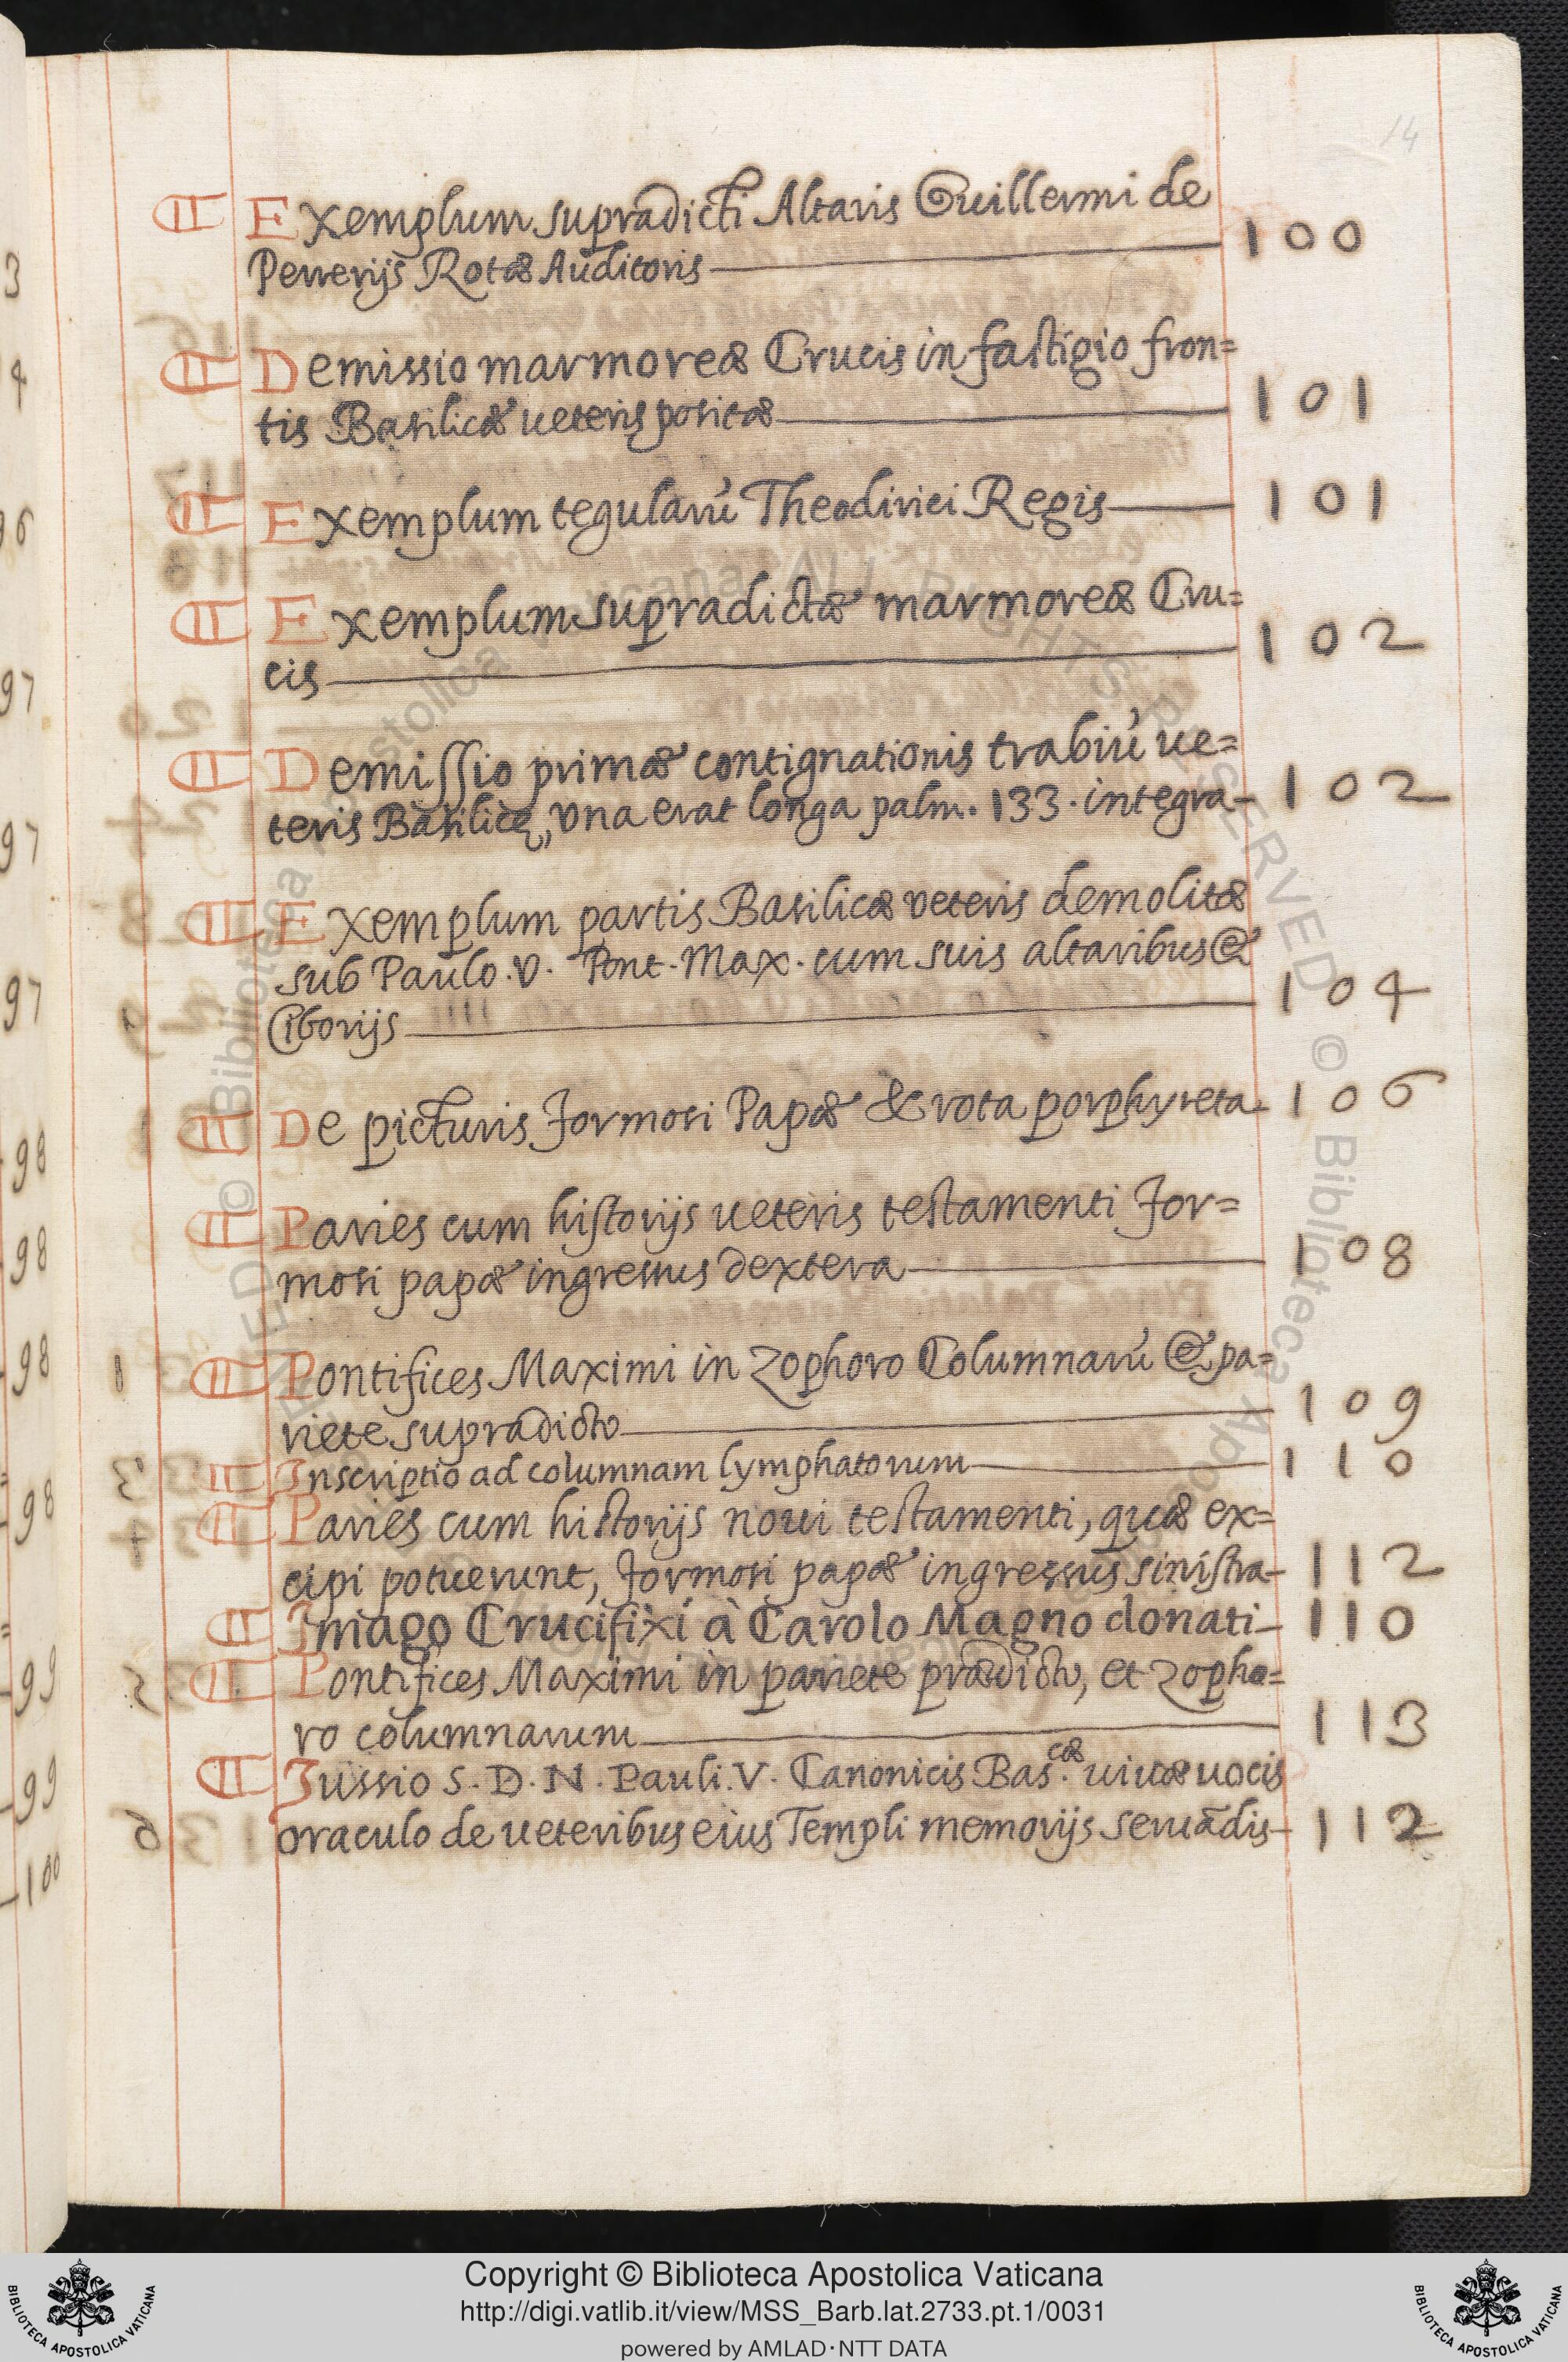 14
¶ Exemplum supradicti Altaris Guillermi de
Perrerijs Rotæ Auditoris — 100
¶ Demissio marmoreæ Crucis in fastigio fron=
tis Basilicæ ueteris positæ — 101
¶ Exemplum tegularũ Theodirici Regis — 101
¶ Exemplum supradictæ marmoreæ Cru=
cis — 102
¶ Demissio primæ contignationis trabiũ ue=
teris Basilicę, vna erat longa palm. 133. integra — 102
¶ Exemplum partis Basilicæ veteris demolitæ
sub Paulo .V. Pont. Max. cum suis altaribus &
Ciborijs — 104
¶ De picturis Formosi Papæ & rota porphyreta 106
¶ Paries cum historijs ueteris testamenti For=
mosi papæ ingressus dextera — 108
¶ Pontifices Maximi in Zophoro Columnarũ & pa=
riete supradicto — 109
¶ Inscriptio ad columnam lymphatorum — 110
¶ Paries cum historijs noui testamenti, quæ ex=
cipi potuerunt, Formosi papæ ingressus sinistra — 112
¶ Imago Crucifixi à Carolo Magno donati — 110
¶ Pontifices Maximi in pariete prædicto, et zopho=
ro columnarum — 113
¶ Jussio S. D. N. Pauli. V. Canonicis Bas.cæ uiuæ uocis
oraculo de ueteribus eius Templi memorijs seruãdis — 112
3
4
96
97
97
97
98
98
98
98
99
99
100
Copyright © Biblioteca Apostolica Vaticana
http://digi.vatlib.it/view/MSS_Barb.lat.2733.pt.1/0031
powered by AMLAD·NTT DATA
BIBLIOTECA APOSTOLICA VATICANA
BIBLIOTECA APOSTOLICA VATICANA